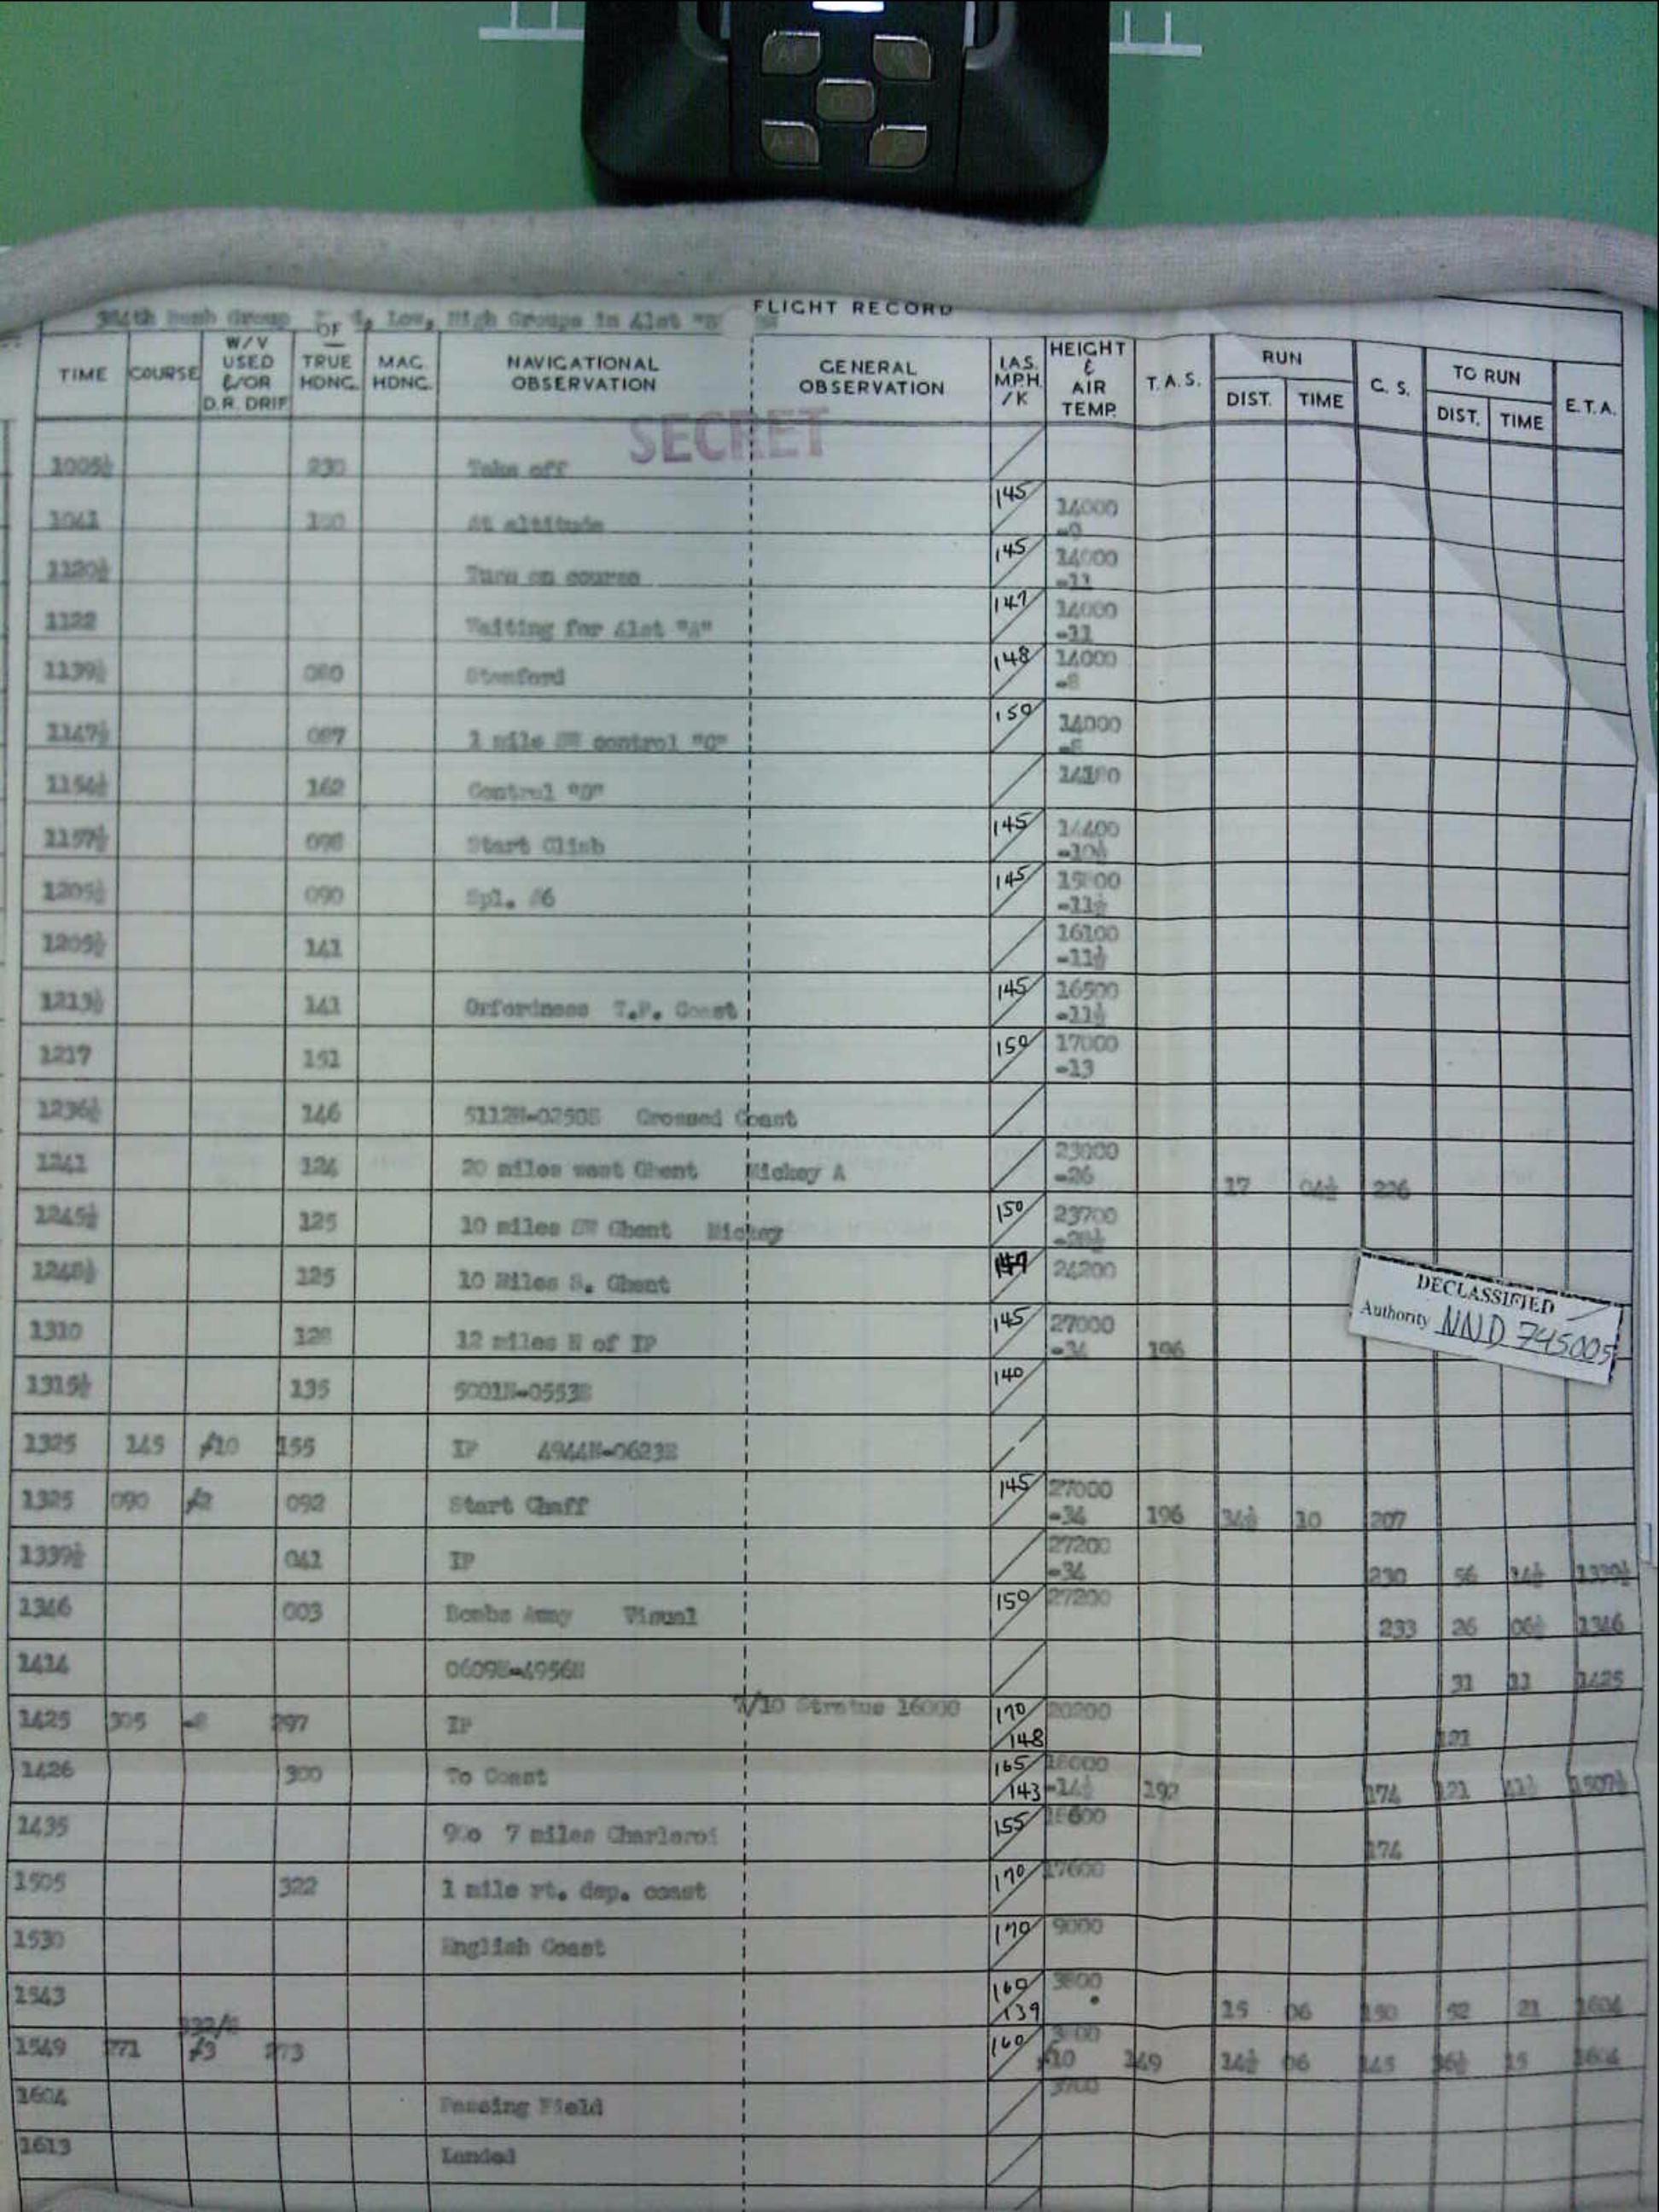 384th Bomb Group Low, High Groups in 41st "B"
FLIGHT RECORD
TIME COURSE W/V USED &/OR D.R. DRIF OF TRUE HDNG. MAG. HDNG. NAVIGATIONAL OBSERVATION GENERAL OBSERVATION I.A.S. M.P.H. /K HEIGHT & AIR TEMP. T.A.S. RUN DIST. TIME C. S. TO RUN DIST. TIME E.T.A.
SECRET
1005½ 230 Take off
1041 At altitude 145 14000
1120½ Turn on course 145 14000 -11
1122 Waiting for 41st "A" 147 14000 -11
1139½ 080 Stamford 148 14000 -8
1147½ 087 1 mile SW control "C" 150 14000
1154½ 162 Control "D"
1157½ 098 Start Climb 145 14400 -10½
1205½ 090 Spl. #6 145 -11½
1205½ 141 16100 -11½
1213½ 141 Orfordness T.P. Coast 145 16500 -11½
1217 151 150 17000 -13
1236½ 146 5112N-0250E Crossed Coast
1241 124 20 miles west Ghent Mickey A 23000 -26 17 04½ 226
1245½ 125 10 miles SW Ghent Mickey 150 23700 -28½
1248½ 125 10 Miles S. Ghent 24200
DECLASSIFIED
Authority NND 745005
1310 128 12 miles N of IP 145 27000 -34 196
1315½ 135 5001N-0553E 140
1325 145 /10 155 IP 4944N-0623E
1325 090 /2 092 Start Chaff 145 27000 -34 196 34½ 10 207
1339½ 041 IP 27200 -34 230 56 14½ 1339½
1346 003 Bombs Away Visual 150 27200 233 26 06½ 1346
1414 0609E-4956N 31 11 1425
1425 305 -8 297 IP /10 Stratus 16000 170/148 20200 121
1426 300 To Coast 165/143 18000 -14½ 192 174 121 41½ 1507½
1435 7 miles Charleroi 155 174
1505 322 1 mile rt. dep. coast 170 17600
1530 English Coast 170 9000
1543 160/139 15 06 150 52 21 1604
1549 271 332/8 /3 273 160 /10 149 14½ 06 145 36½ 15 1604
1604 Passing Field
1613 Landed